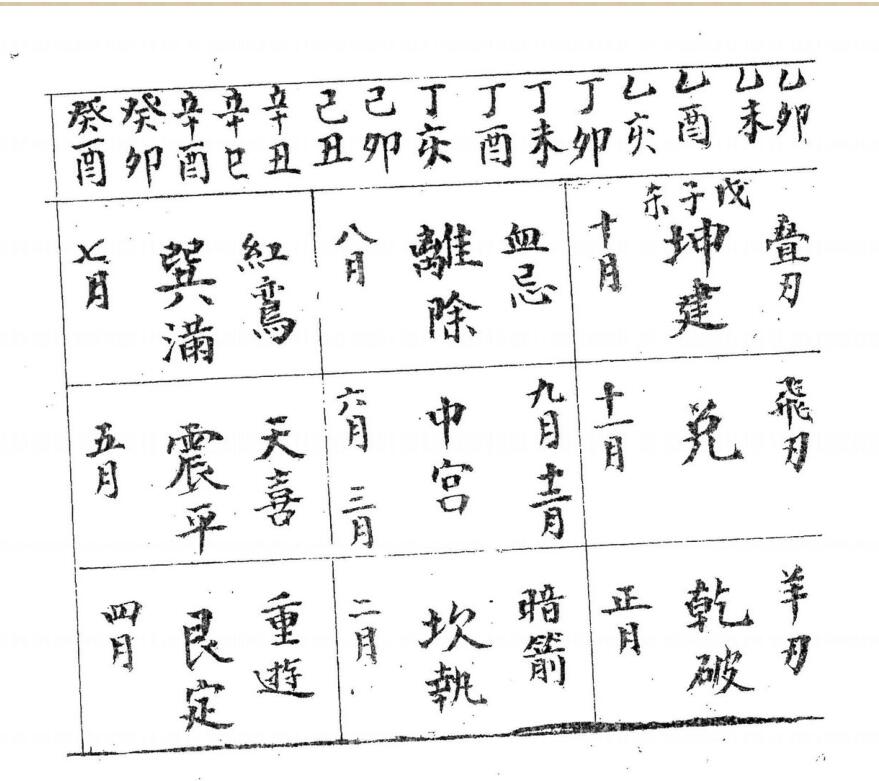 乙卯
乙未
乙酉
乙亥
丁卯
丁未
丁酉
丁亥
己卯
己丑
辛丑
辛巳
辛酉
癸卯
癸酉
疊刃
戊子
坤建
十月
血忌
離除
八月
紅鸞
巽滿
七月
飛刃
兌
十一月
九月十二月
中宮
六月三月
天喜
震平
五月
羊刃
乾破
正月
暗箭
坎執
二月
重遊
艮定
四月